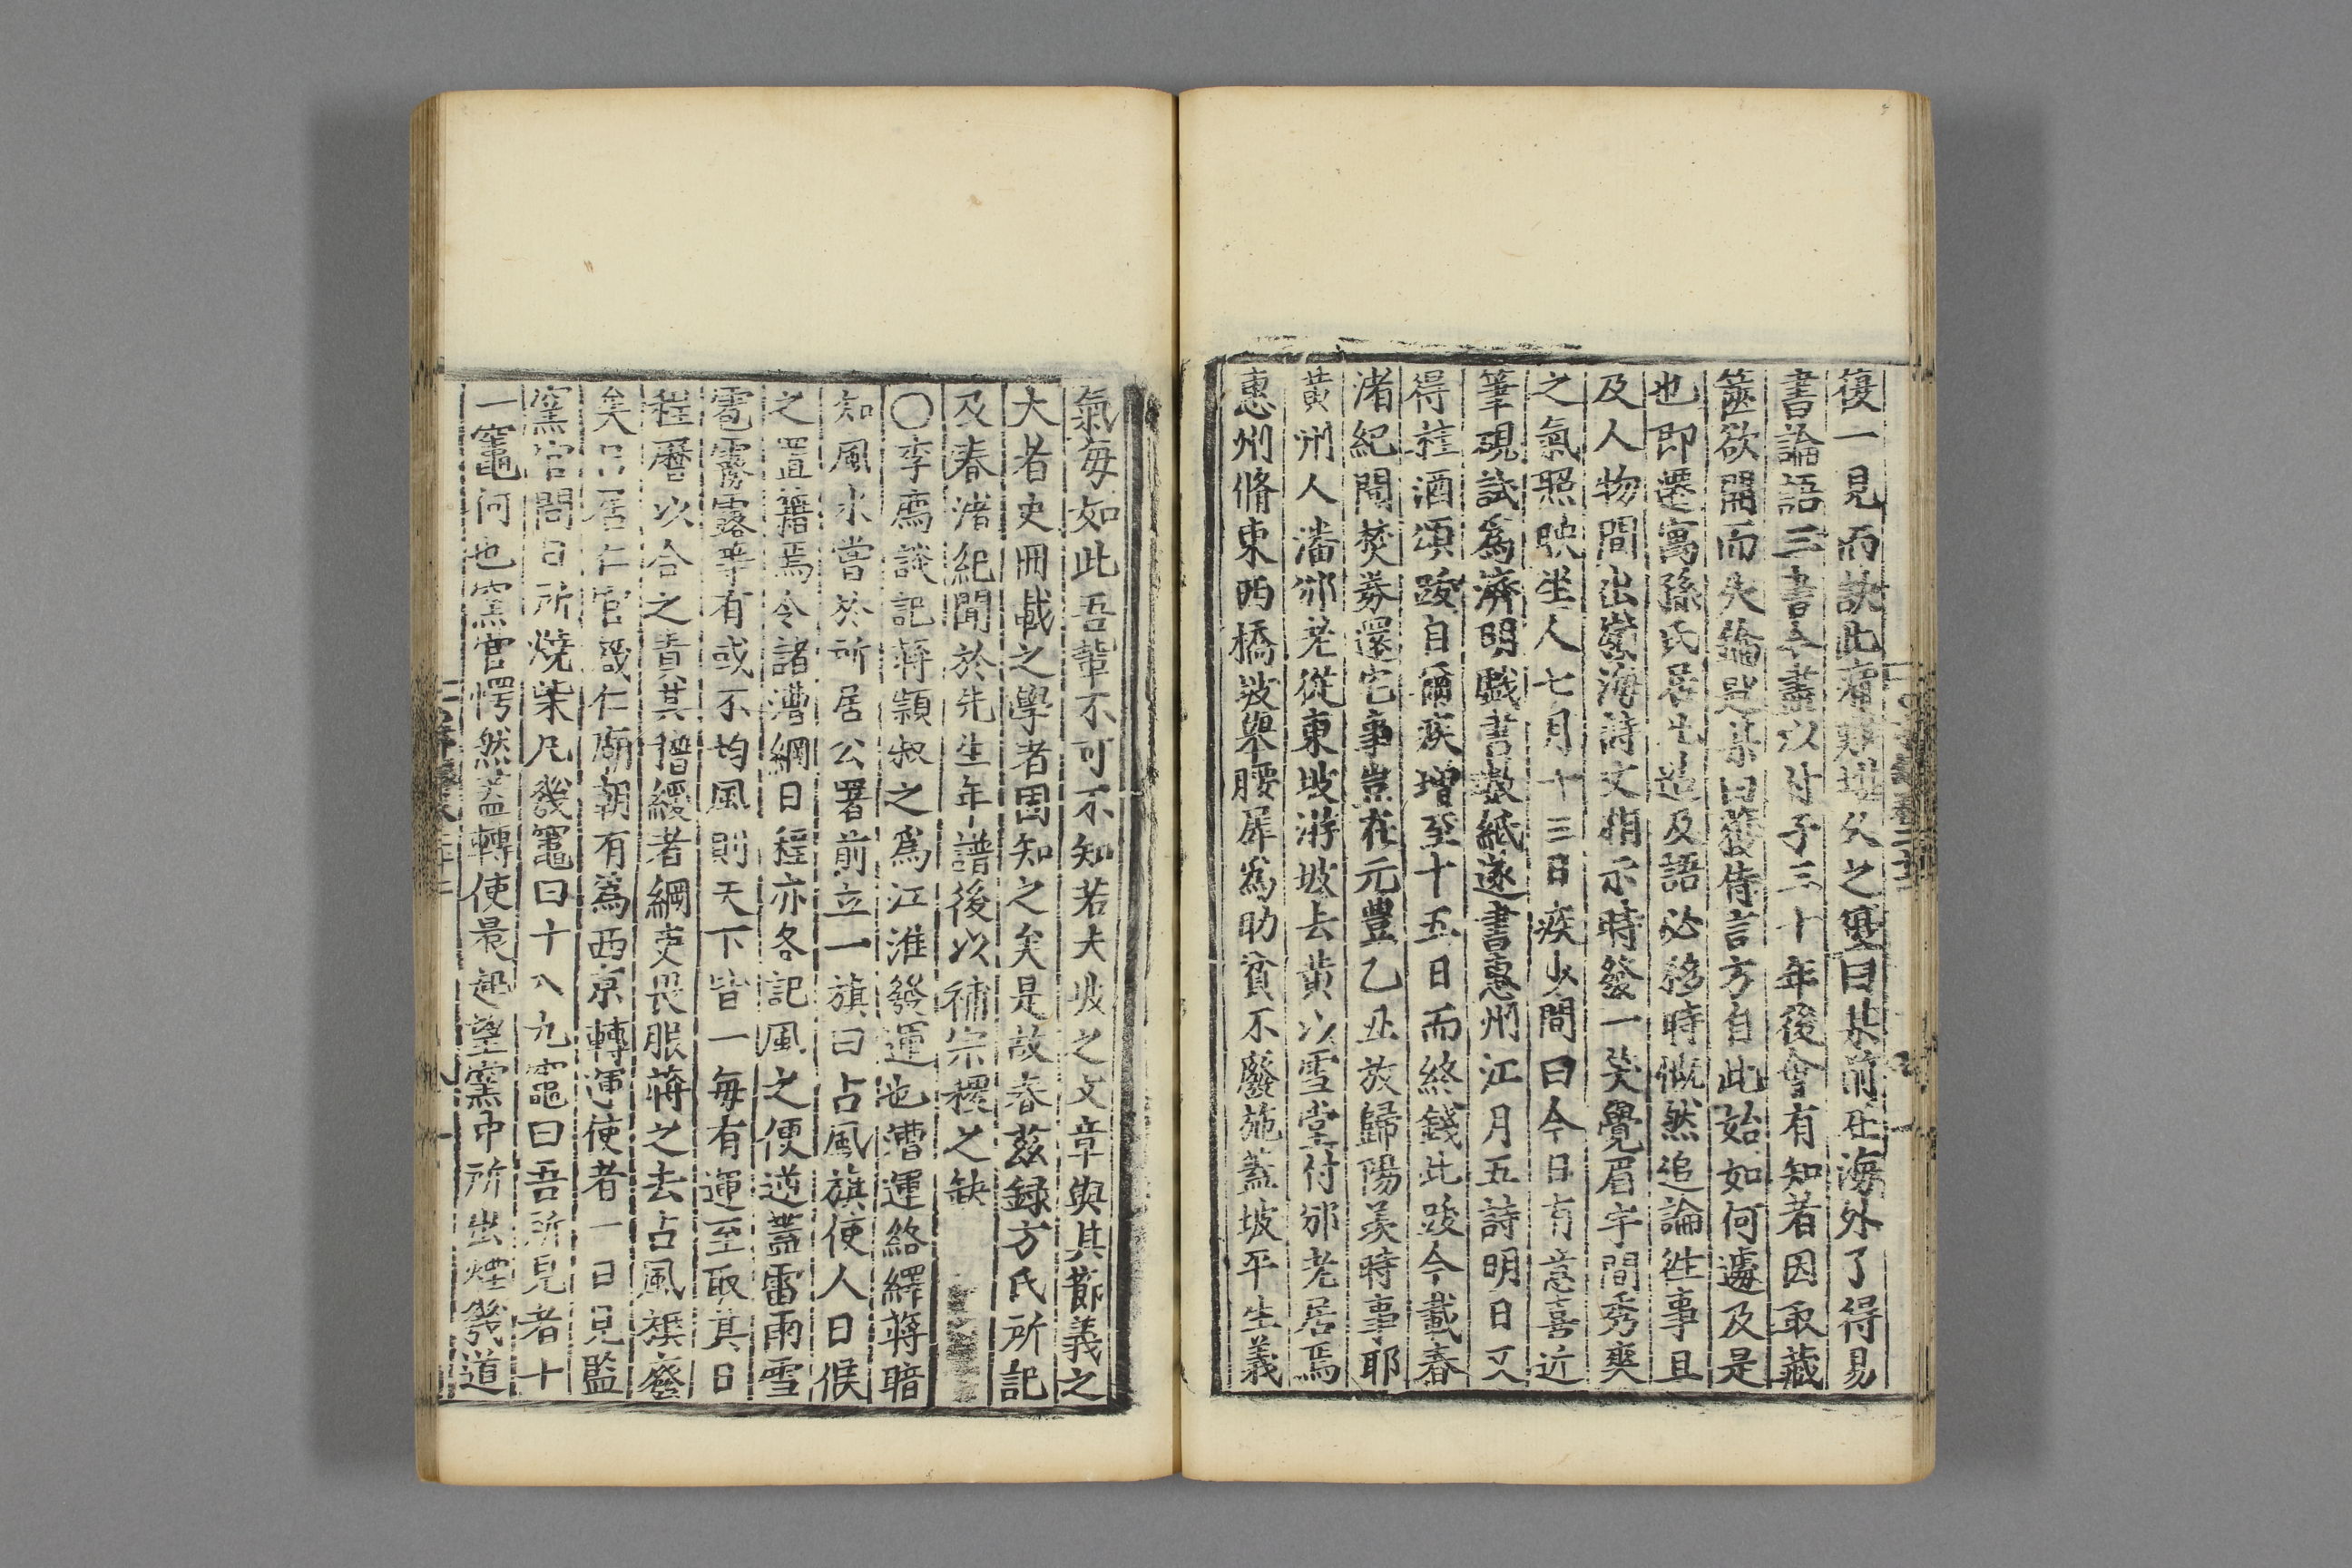 復一見而訣此痛難堪久之復曰某前在海外了得易
書論語三書今盡以付子三十年後會有知者因取藏
篋欲開而失鑰匙某曰獲侍言方自此始如何遽及是
也即遷寓孫氏居日造及語必移時慨然追論徃事且
及人物間出嶺海詩文相示時發一笑覺眉宇間秀爽
之氣照映坐人七月十三日疾少間曰今日有意喜近
筆硯試爲濟明戲書數紙遂書惠州江月五詩明日又
得桂酒頌跋自爾疾增至十五日而終錢此跋今載春
渚紀聞焚券還宅事豈在元豐乙丑放歸陽羨時事耶
黄州人潘邠老從東坡游坡去黄以雪堂付邠老居焉
惠州脩東西橋坡舉腰犀爲助貧不廢施蓋坡平生義
氣毎如此吾輩不可不知若夫坡之文章與其節義之
大者史冊載之學者固知之矣是故春茲録方氏所記
及春渚紀聞於先生年譜後以補宗稷之缺
〇李廌談記蔣頴叔之爲江淮發運也漕運絡繹蔣暗
知風水嘗於所居公署前立一旗曰占風旗使人日候
之置籍焉令諸漕綱日程亦各記風之便逆蓋雷雨雪
雹霧露等有或不均風則天下皆一毎有運至取其日
程曆以合之責其稽緩者綱吏畏服蔣之去占風旗廢
矣呂居仁官箴仁廟朝有爲西京轉運使者一日見監
窯官問日所燒柴凡幾竈曰十八九竈曰吾所見者十
一竈何也窯官愕然蓋轉使晨起望窯中所出煙幾道